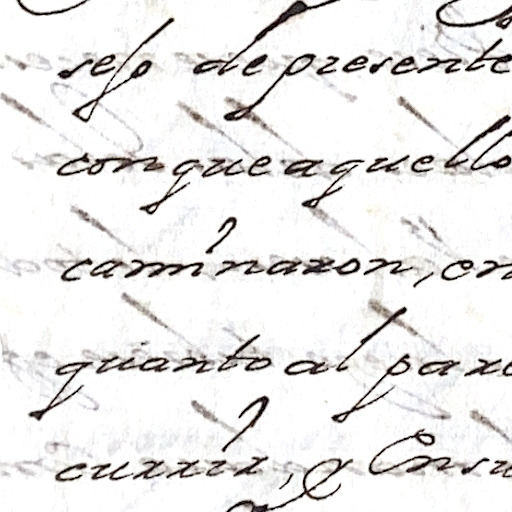 seso de presente
con que aquello
caminaron, en
quanto al pare
currir, y En su